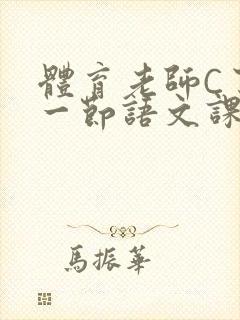 體育老師C
一節語文課
馬振華